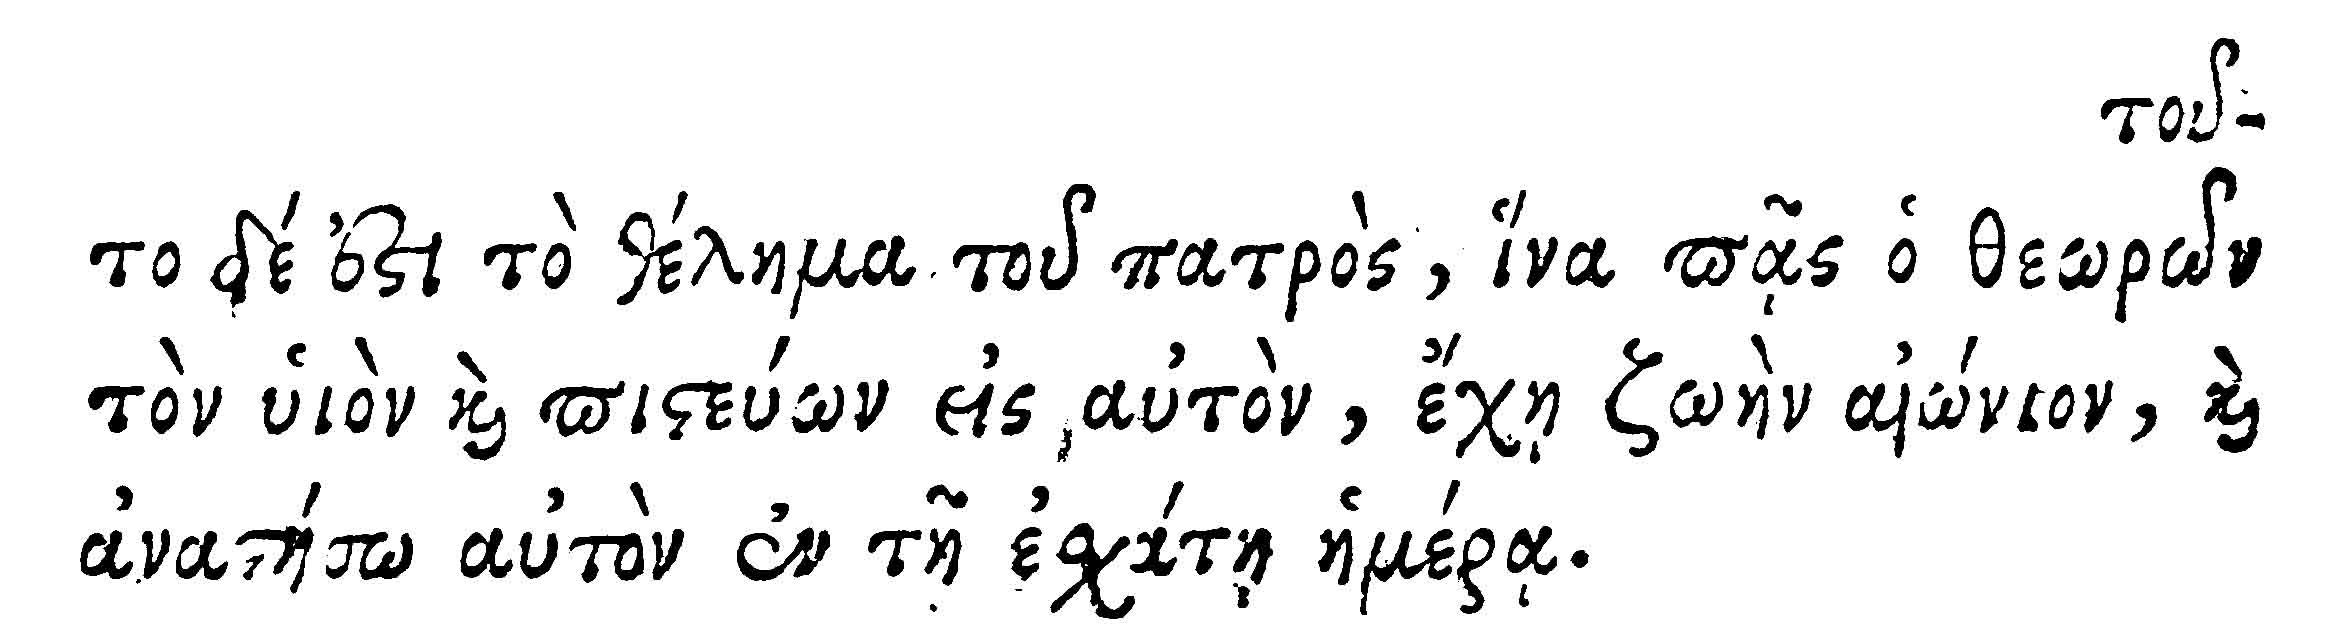 τοῦ-
το δέ ἐστι τὸ θέλημα τοῦ πατρὸς, ἵνα πᾶς ὁ θεωρῶν
τὸν ὑιὸν ϗ̀ πιστεύων εἰς αὐτὸν, ἔχῃ ζωὴν αἰώνιον, ϗ̀
ἀναστήσω αὐτὸν ἐν τῇ ἐσχάτῃ ἡμέρᾳ.